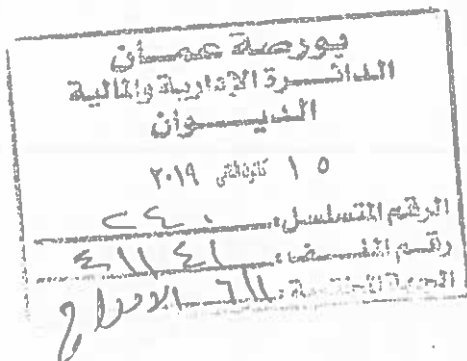 بورصة عمان
الدائرة الإدارية والمالية
الديوان
١٥ كانون الثاني ٢٠١٩
الرقم المتسلسل: ٢٤٠
رقم الملف: ٤١١٤١
الجهة المختصة: الادراج